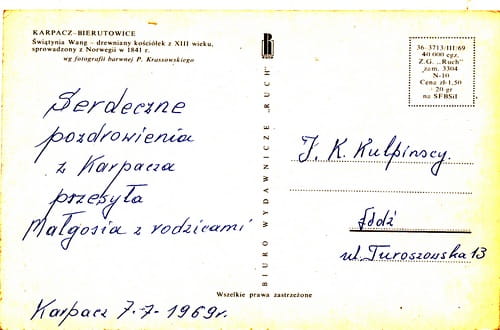 KARPACZ-BIERUTOWICE
Świątynia Wang - drewniany kościółek z XIII wieku,
sprowadzony z Norwegii w 1841 r.
wg fotografii barwnej P. Krassowskiego
Serdeczne
pozdrowienia
z Karpacza
przesyła
Małgosia z rodzicami
Karpacz 7-7-1969r.
BIURO WYDAWNICZE „RUCH"
36-3713/III/69
40 000 egz.
Z.G. „Ruch"
zam. 3304
N-10
Cena zł 1,50
+ 20 gr
na SFBSiI
J. K. Kulpinscy.
Łódź
ul. Turoszowska 13
Wszelkie prawa zastrzeżone